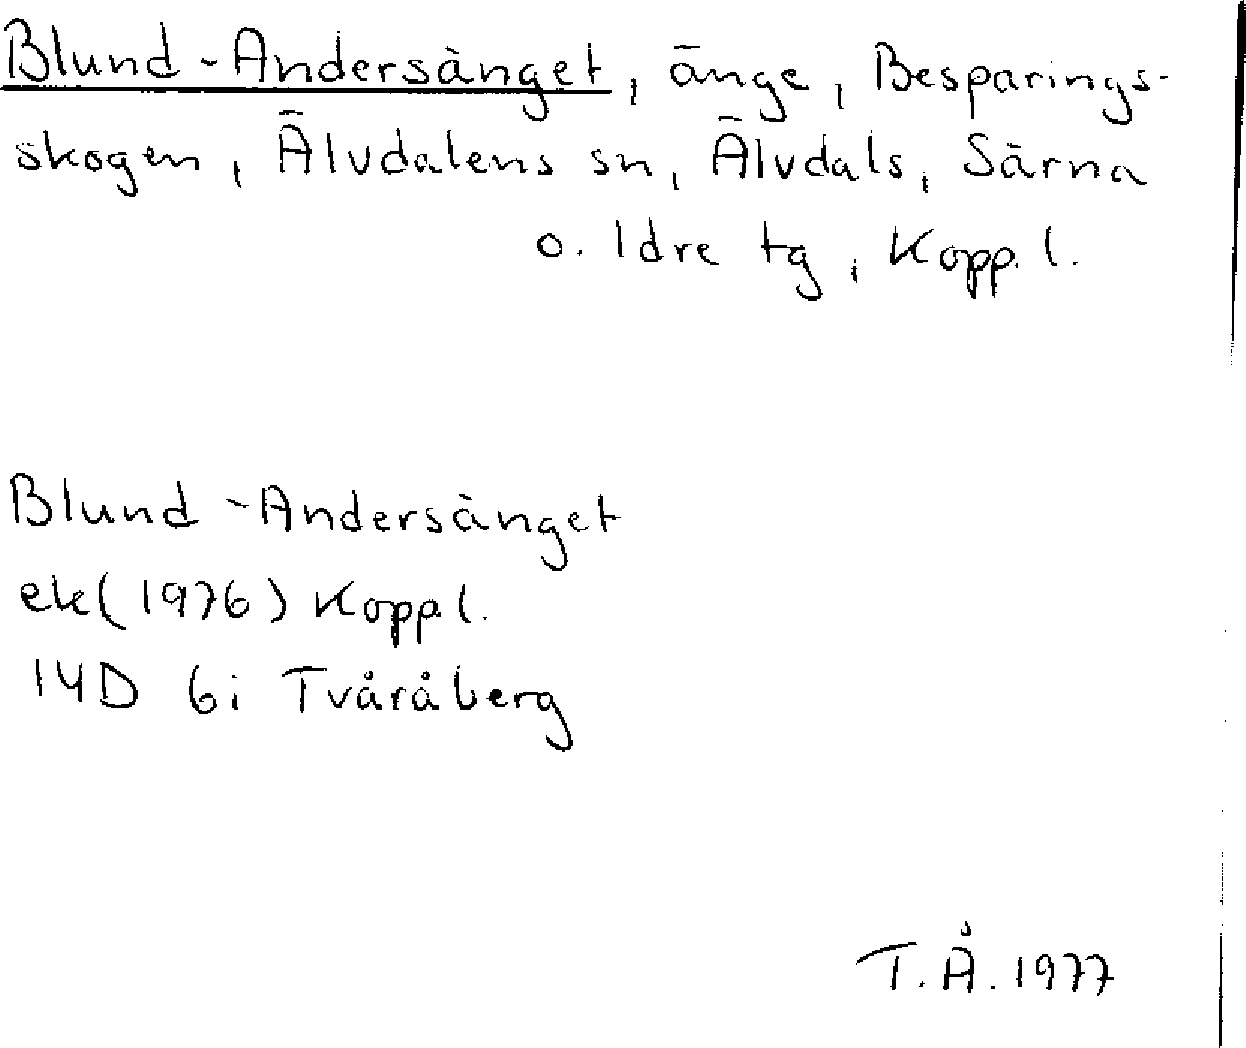 Blund-Andersänget, änge, Besparings-
skogen, Älvdalens sn, Älvdals, Särna
o. Idre tg, Kopp. l.
Blund-Andersänget
ek(1976) Kopp l.
14D 6i Tvåråberg
T.Å. 1977